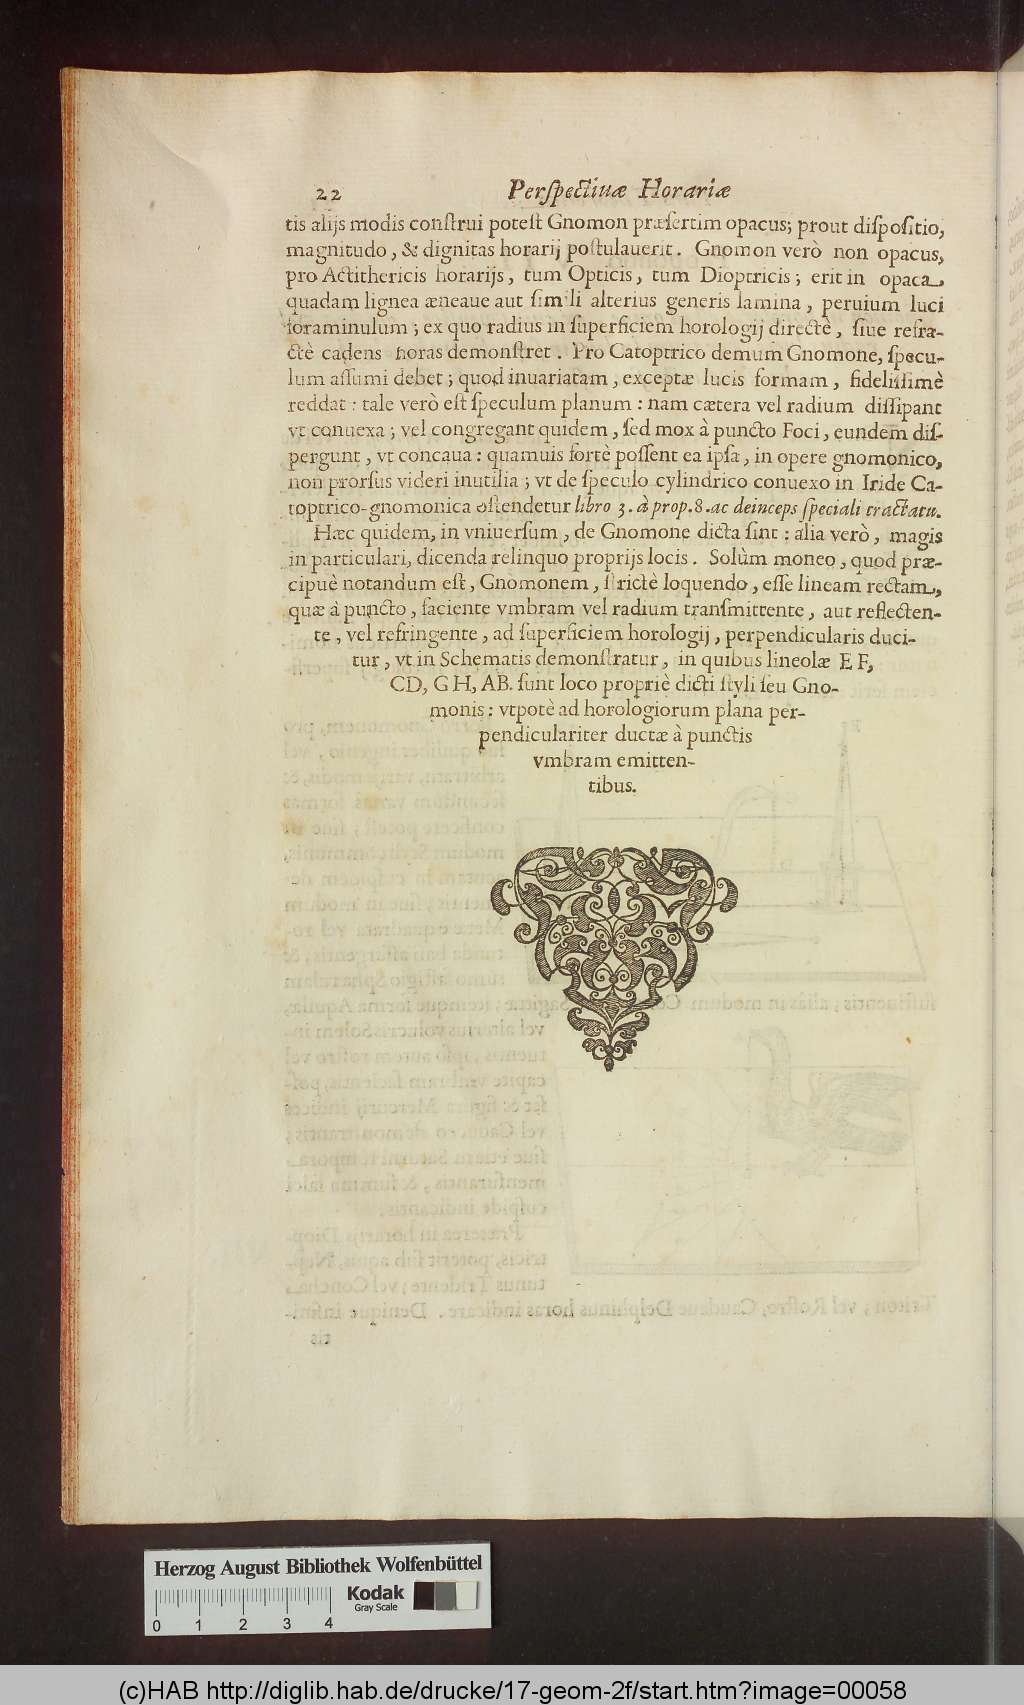 22 Perſpectiuæ Horariæ
tis alijs modis conſtrui poteſt Gnomon præſertim opacus; prout diſpoſitio,
magnitudo, & dignitas horarij poſtulauerit. Gnomon verò non opacus,
pro Actithericis horarijs, tum Opticis, tum Dioptricis; erit in opaca,
quadam lignea æneaue aut ſimili alterius generis lamina, peruium luci
foraminulum; ex quo radius in ſuperficiem horologij directè, ſiue refra-
ctè cadens horas demonſtret. Pro Catoptrico demum Gnomone, ſpecu-
lum aſſumi debet; quod inuariatam, exceptæ lucis formam, fideliſſimè
reddat: tale verò eſt ſpeculum planum: nam cætera vel radium diſſipant
vt conuexa; vel congregant quidem, ſed mox à puncto Foci, eundem diſ-
pergunt, vt concaua: quamuis fortè poſſent ea ipſa, in opere gnomonico,
non prorſus videri inutilia; vt de ſpeculo cylindrico conuexo in Iride Ca-
toptrico-gnomonica oſtendetur libro 3. à prop. 8. ac deinceps ſpeciali tractatu.
Hæc quidem, in vniuerſum, de Gnomone dicta ſint: alia verò, magis
in particulari, dicenda relinquo proprijs locis. Solùm moneo, quod præ-
cipuè notandum eſt, Gnomonem, ſtrictè loquendo, eſſe lineam rectam,
quæ à puncto, faciente vmbram vel radium tranſmittente, aut reflecten-
te, vel refringente, ad ſuperficiem horologij, perpendicularis duci-
tur, vt in Schematis demonſtratur, in quibus lineolæ EF,
CD, GH, AB. ſunt loco propriè dicti ſtyli ſeu Gno-
monis: vtpotè ad horologiorum plana per-
pendiculariter ductæ à punctis
vmbram emitten-
tibus.
Herzog August Bibliothek Wolfenbüttel
Kodak
Gray Scale
0 1 2 3 4
(c)HAB http://diglib.hab.de/drucke/17-geom-2f/start.htm?image=00058